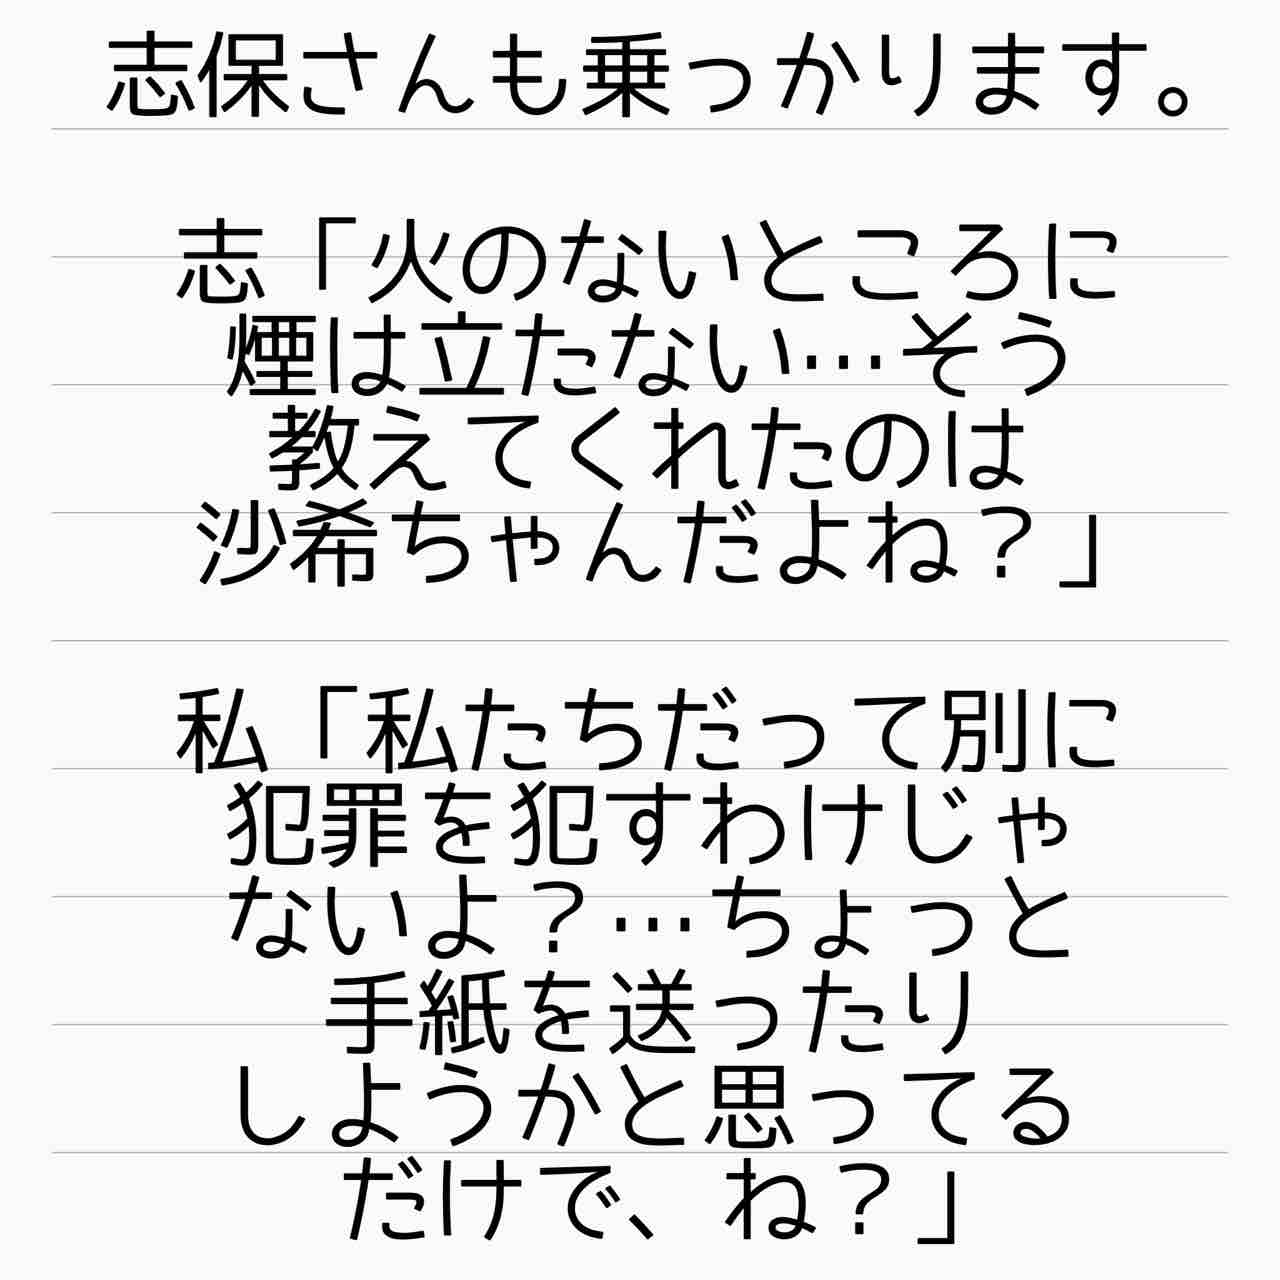 志保さんも乗っかります。
志「火のないところに
煙は立たない…そう
教えてくれたのは
沙希ちゃんだよね？」
私「私たちだって別に
犯罪を犯すわけじゃ
ないよ？…ちょっと
手紙を送ったり
しようかと思ってる
だけで、ね？」